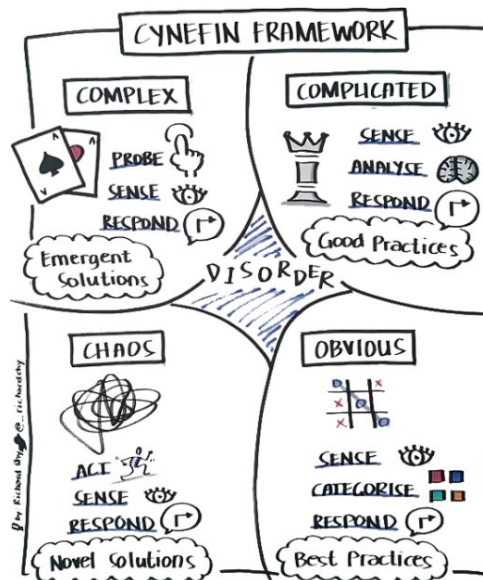 CYNEFIN FRAMEWORK
COMPLEX
A
A
A
PROBE
SENSE
RESPOND
Emergent
Solutions
COMPLICATED
SENSE
ANALYSE
RESPOND
Good Practices
DISORDER
CHAOS
ACT
SENSE
RESPOND
Novel Solutions
OBVIOUS
X
X
X
SENSE
CATEGORISE
RESPOND
Best Practices
by Richard Shy @_richardshy